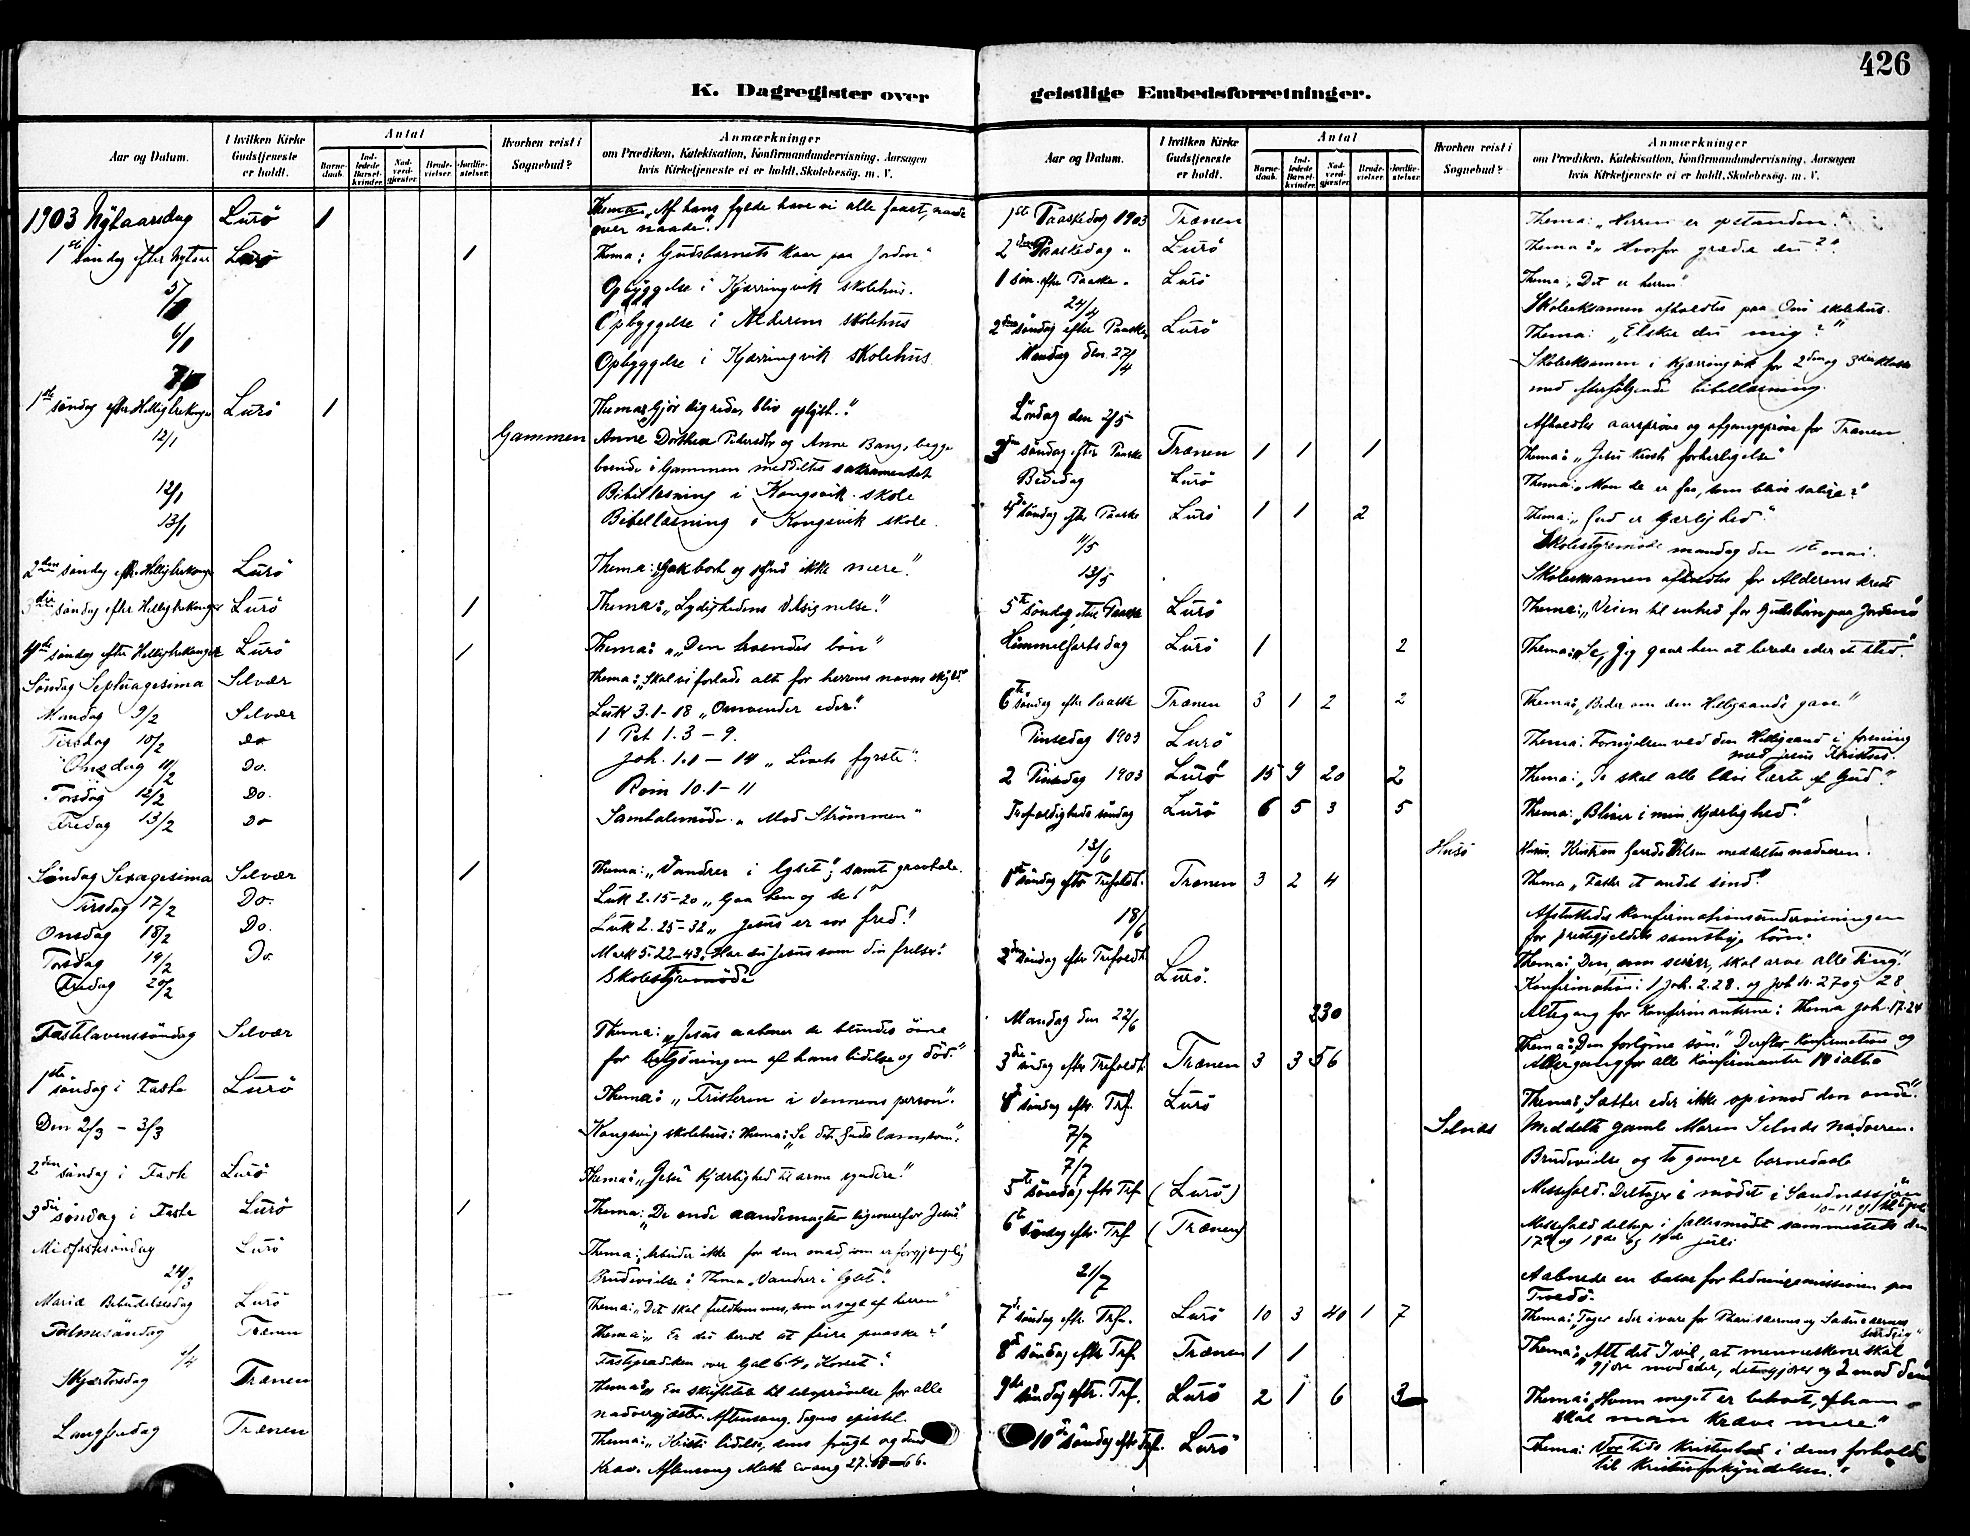 426
K. Dagregister over
Aar og Datum. I hvilken Kirke Gudstjeneste er holdt. Antal Barnedaab. Indledede Barselkvinder. Nadvergjæster. Brudevielser. Jordfæstelser. Hvorhen reist i Sognebud? Anmærkninger
om Prædiken, Katekisation, Konfirmandundervisning, Aarsagen
hvis Kirketjeneste ei er holdt, Skolebesøg. m. V.
1903 Nytaarsdag Lurö 1 Thema: „Af hans fylde have vi alle faaet, naade
over naade".
1ste söndag efter Nytaar Lurö 1 Thema: Gudsbarnets kaar paa Jorden"
5/1 Opbyggelse i Kjærringvik skolehus.
6/1 Opbyggelse i Alderens skolehus
7/1 Opbyggelse i Kjærringvik skolehus
1ste söndag efter Helligtrekonger Lurö 1 Thema: Gjör dig rede, bliv oplyst."
12/1 Gammen Anne Dorthea Petersdtr og Anne Bang, begge
boende i Gammen meddeltes sakramentet
12/1 Bibellæsning i Kongsvik skole
13/1 Bibellæsning i Kongsvik skole.
2den söndag eft. Helligtrekonger Lurö Thema: „Gak bort og synd ikke mere".
3die söndag efter Helligtrekonger Lurö 1 Thema: „Lydighedens velsignelse".
4de söndag efter Helligtrekonger Lurö 1 Thema: „Den troendes bön"
Söndag Septuagesima Selvær Thema: „Skal vi forlade alt for herrens navns skyld".
Mandag 9/2 Selvær Luk 3.1-18 „Omvender eder".
Tirsdag 10/2 do 1 Pet 1.3-9.
Onsdag 11/2 Do. Joh. 1.1-14 „Livets fyrste".
Torsdag 12/2 Do. Rom 10.1-11
Fredag 13/2 Do Samtalemöde. „Mod Strømmen"
Söndag Sexagesima Selvær 1 Thema: „Vandrer i lyset"; samt gravtale.
Tirsdag 17/2 Do. Luk 2.15-20 „Gaa hen og se!"
Onsdag 18/2 Do. Luk 2.25-32 „Jesus er vor fred!
Torsdag 19/2 Do Mark 5.22-43. Har du Jesus som din frelser!
Fredag 20/2 Skolestyremöde
Fastelavenssöndag Selvær Thema: „Jesus aabner de blindes öine
for betydningen af hans lidelse og död."
1ste söndag i Faste Lurö Thema: „Fristeren i vennens person".
Den 2/3 - 3/3 Kongsvig skolehus: Thema: „Se det Guds lam, som".
2den söndag i Faste Lurö Thema: „Jesu Kjærlighed til arme syndere!"
3die söndag i Faste Lurö 1 Thema: „De onde aandemagter ligeoverfor Jesus"
Midfastesöndag Lurö Thema: Arbeider ikke for den mad som er forgjængelig
24/3 Brudevielse: Thema „Vandrer i lyset".
Mariæ Bebudelsesdag Lurö Thema: „Det skal fuldkommes, som er sagt af herren"
Palmesöndag Trænen Thema: „Er du beredt at feire paaske?"
1/4 Fastprædiken over Gal 6. „Korset".
Skjærtorsdag Trænen Thema: „En skriftetale til selvprövelse for alle
nadvergjæster. Aftensang. dagens epistel.
Langfredag Trænen Thema: „Kristi lidelse, dens frugt og dens
krav. Aftensang Math Evang 27. -66.
geistlige Embedsforretninger.
Aar og Datum. I hvilken Kirke Gudstjeneste er holdt. Antal Barnedaab. Indledede Barselkvinder. Nadvergjæster. Brudevielser. Jordfæstelser. Hvorhen reist i Sognebud? Anmærkninger
om Prædiken, Katekisation, Konfirmandundervisning, Aarsagen
hvis Kirketjeneste ei er holdt, Skolebesøg. m. V.
1ste Paaskedag 1903 Trænen Thema: „Herren er opstanden".
2den Paaskedag " Lurö Thema: „Hvorfor græder du?".
1 sön. efter Paaske " Lurö Thema: „Det er herren"
24/4 Skoleeksamen afholdtes paa Onö skolehus.
2den söndag efter Paaske Lurö Thema: „Elsker du mig?"
Mandag den 27/4 Skoleeksamen i Kjærringvik for 2den og 3die klasse
med efterfölgende bibellæsning.
Lördag den 2/5 Afholdtes aarspröve og afgangspröve for Trænen
3die söndag efter Paaske Trænen 1 1 1 Thema: „Jesu Kristi forherligelse"
Bededag Lurö Thema: „Mon de er faa, som blive salige?"
4de söndag efter Paaske Lurö 1 1 2 Thema: „Gud er Kjærlighed".
11/5 Skolestyremöde mandag den 11te mai.
13/5 Skoleeksamen afholdtes for Alderens kreds
5te söndag efter Paaske Lurö Thema: „Veien til enhed for Guds börn paa Jorden"
Himmelfartsdag Lurö 1 2 Thema: „Se, Jeg gaar hen at berede eder et sted".
6te söndag efter Paaske Trænen 3 1 2 2 Thema: „Beder om den Helligaands gave"
Pinsedag 1903 Lurö Thema: Fornyelsen ved den Helligaand i forening
med Jesus Kristus.
2 Pinsedag 1903 Lurö 15 9 20 2 Thema: „De skal alle blive lærte af Gud".
Trefoldigheds söndag Lurö 6 5 3 5 Thema: „Bliver i min Kjærlighed".
13/6 Husö Kristian meddeltes nadveren.
1ste söndag efter Trefoldt. Trænen 3 2 4 Thema „Fatter et andet sind".
18/6 Afsluttedes Konfirmationsundervisningen
for prestegjeldets samtlige börn.
2den söndag efter Trefoldt. Lurö. Thema: „Den, som seirer, skal arve alle ting".
Konfirmation: 1 Joh. 2.28. og Joh 10. 27 og 28
Mandag den 22/6 30 Altergang for Konfirmanterne: Thema Joh. 17.24
3die söndag efter Trefoldt. Trænen 3 3 56 Thema: „Den fortapte sön." Derefter Konfirmation og
Altergang for alle Konfirmanter 19 ialt
4de söndag eftr. Trf. Lurö Thema: „Sætter eder ikke op imod den onde".
7/7 Selnæs Meddelt gamle Maren Selnæs nadveren.
7/7 Brudevielse og to gange barnedaab
5te söndag eftr Trf (Lurö) Messefald. Deltager i mödet i Sandnessjöen
10-11 og 12te juli
6te söndag eftr. Trf (Trænen) Messefald deltager i fællesmödet sammesteds den
17de og 18de og 19de juli
21/7 Aabnede en basar for hedningemissionen paa
Tvedö.
7de söndag eftr. Trf. Lurö 10 3 40 1 7 Thema: Tager eder ivare for Pharisæernes og Saducæernes
surdeig"
8de söndag efter Trf. Trænen 1 1 Thema: „Alt det I vil, at menneskene skal
gjöre mod eder, det gjöre og I mod dem
9de söndag eftr. Trf. Lurö 2 1 6 3 Thema: Hvem meget er betroet, af ham
skal man kræve mere"
10de söndag eft. Trf. Lurö Thema: Vor tids Kristenhed i dens forhold
til Kristusforkyndelsen."